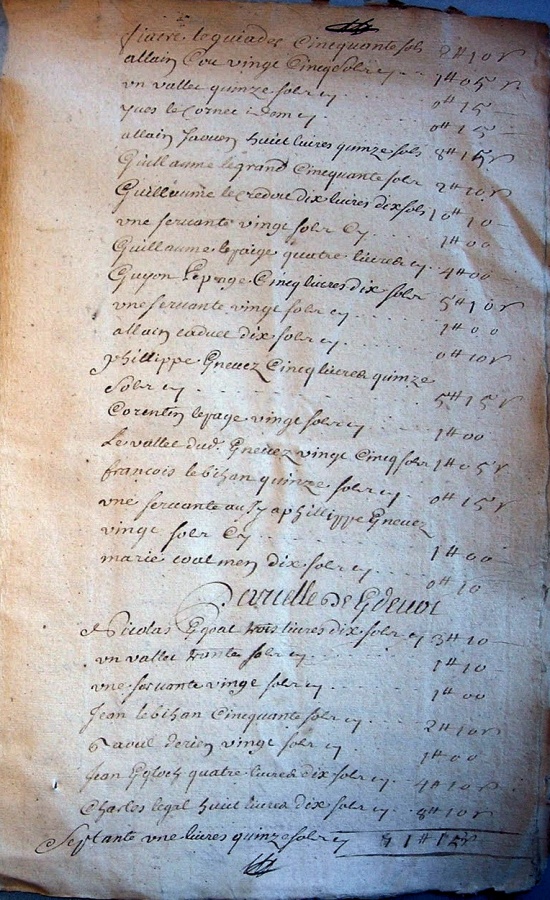 fiacre le quiadec Cincquante sols 2# 10 s
allain Cou vinge Cincq solz cy 1# 05 s
vn vallet quinze solz cy 0# 15
yues le Cornec idem cy 0# 15
allain Jaouen huict liures quinze solz 8# 15 s
Guillaume le grand Cincquante solz 2# 10 s
Guillaume le Credou dix liures dix solz 10# 10
vne seruante vinge solz Cy 1# 00
Guillaume le faige quatre liures cy 4# 00
Guyon Cincq liures dix solz 5# 10 s
vne seruante vinge solz cy 1# 00
allain dix solz cy 0# 10 s
phillippe Gneuez Cincq liures quinze
solz cy 5# 15 s
Corentin le page vinge solz cy 1# 00
Le vallet dud. Gneuez vinge Cincq solz 1# 05 s
françois le bihan quinze solz cy 0# 15 s
vne seruante phillippe Gneuez
vinge solz Cy 1# 00
marie coatmen dix solz cy 0# 10
de
Nicolas Ggoat trois liures dix solz cy 3# 10
vn vallet trante solz cy 1# 10
vne seruante vinge solz cy 1# 00
Jean le bihan Cincquante solz cy 2# 10 s
derien vinge solz cy 1# 00
Jean quatre liures dix solz cy 4# 10 s
Charles le gal huict liures dix solz cy 8# 10 s
Septante vne liures quinze solz cy 71# 15 s